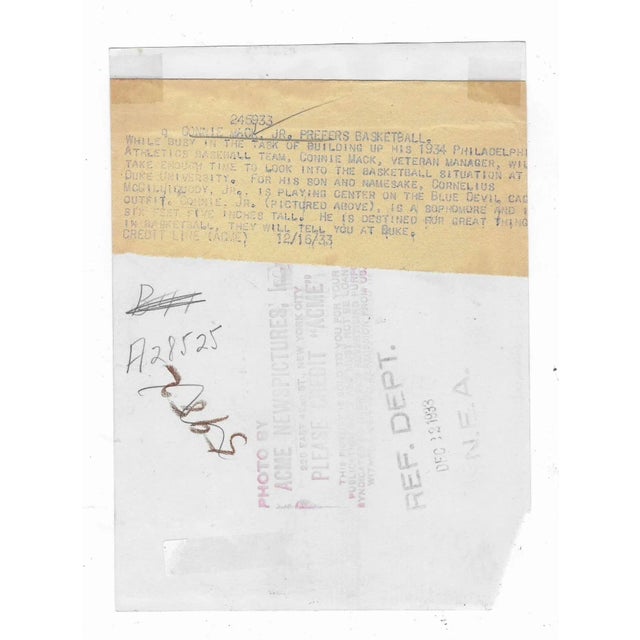 245933
CONNIE MACK, JR. PREFERS BASKETBALL.
WHILE BUSY IN THE TASK OF BUILDING UP HIS 1934 PHILADELPHI
ATHLETICS BASEBALL TEAM, CONNIE MACK, VETERAN MANAGER, WIL
TAKE ENOUGH TIME TO LOOK INTO THE BASKETBALL SITUATION AT
DUKE UNIVERSITY. FOR HIS SON AND NAMESAKE, CORNELIUS
MCGILLICUDDY, JR., IS PLAYING CENTER ON THE BLUE DEVIL CAG
OUTFIT. CONNIE, JR. (PICTURED ABOVE), IS A SOPHOMORE AND I
SIX FEET FIVE INCHES TALL. HE IS DESTINED FOR GREAT THING
IN BASKETBALL, THEY WILL TELL YOU AT DUKE.
CREDIT LINE (ACME) 12/16/33
A28525
PHOTO BY
ACME NEWSPICTURES,
220 EAST 42ND ST., NEW YORK CITY
PLEASE CREDIT "ACME"
REF. DEPT.
DEC 12 1933
N.E.A.